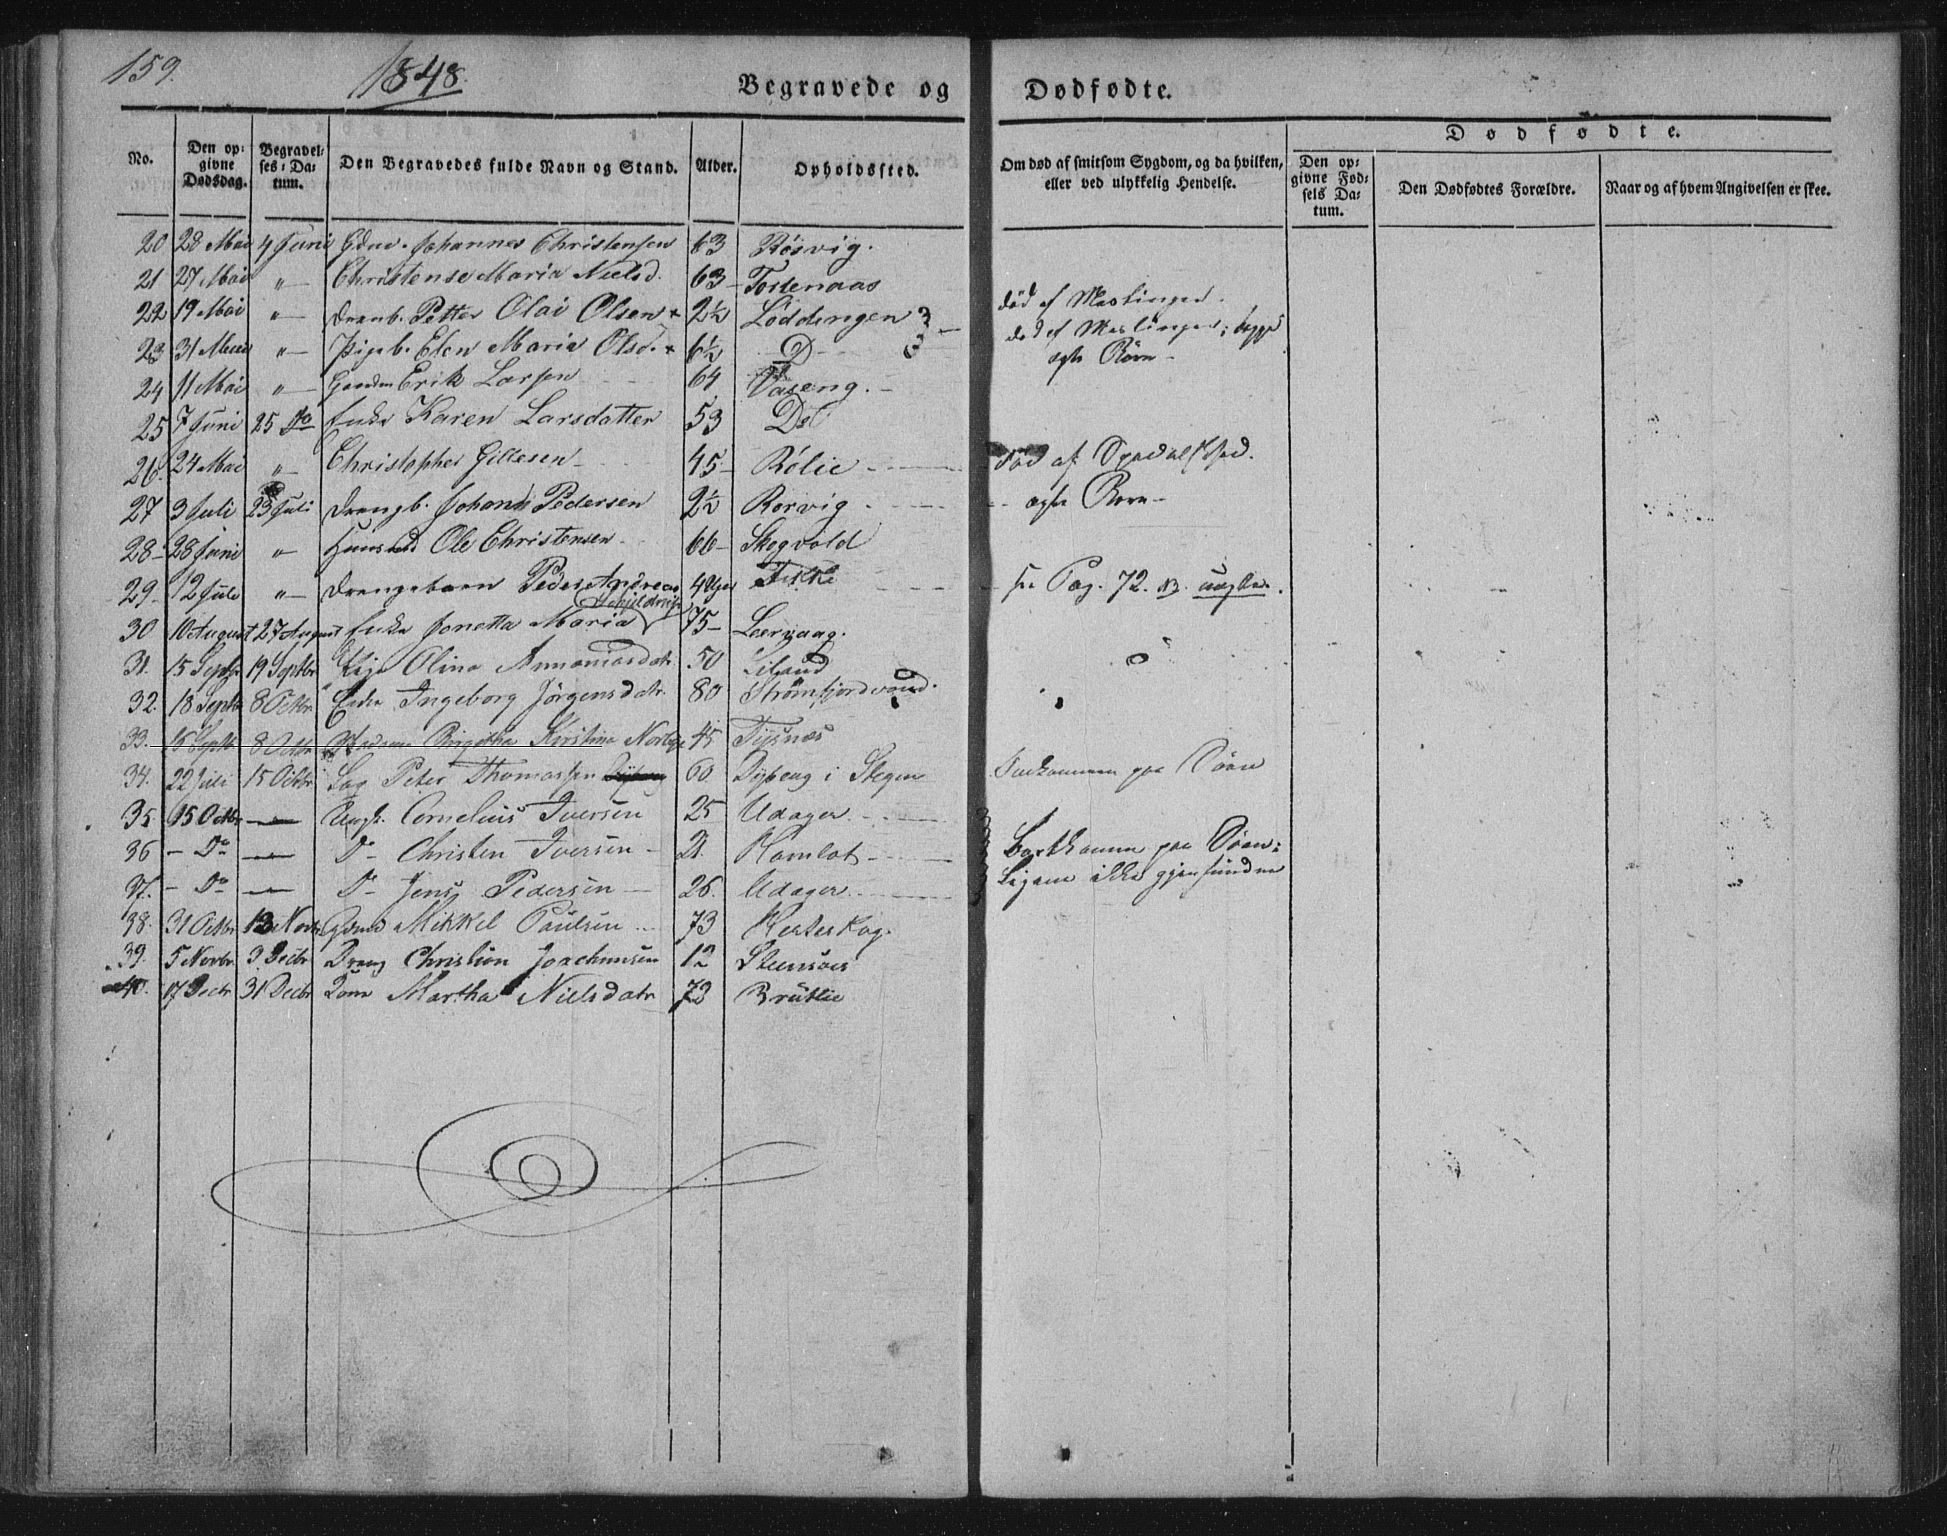 159.
1848.
Begravede og Dødfødte.
No.
Den opgivne Dødsdag.
Begravelses-Datum.
Den Begravedes fulde Navn og Stand.
Alder.
Opholdssted.
Om død af smitsom Sygdom, og da hvilken, eller ved ulykkelig Hendelse.
Dødfødte.
Den opgivne Fødsels Datum.
Den Dødfødtes Forældre.
Naar og af hvem Angivelsen er skee.
20 28 Mai 4 Juni Johannes Christensen 63 Rösvig.
21 27 Mai " Christense Maria Nielsd. 63 Tostenaas
22 19 Mai " Drengb. Petter Olai Olsen + 2½ Löddingen död af Meslinger.
23 31 " Pigeb. Elen Maria Olsd. + 6½ D död af Meslinger; begge ægte Börn
24 11 Mai " Erik Larsen 64 Vaseng.
25 7 Juni 25 do Enke Karen Larsdatter 53 Do
26. 24 Mai " Christopher Gillesen 45 Rölie Död af Spedalskhed.
27 3 Juli 23 Juli Drengb. Johan Pedersen 2½ Rorvig ægte Barn
28 28 Juni " Huusmd Ole Christensen 66 Skogvold
29 12 Juli " Drengebarn Peder Andreas 4 Uger see Pag. 72. uægte.
30 10 August 27 August Enke Jonetta Maria 75 Leervaag.
31. 15 Septbr 19 Septbr Pige Olina Annaniasdatr 50 Liland
32. 18 Septbr 8 Octbr Enke Ingeborg Jörgensdatr. 80 Strömfjordvand.
33. 15 Septb 8 Octbr Madame Birgitha Kirstina 45 Tysnæs
34. 22 Juli 15 Octbr Peter Thomassen 60 i Stegen Omkommen paa Söen
35. 15 Octbr — Ungk. Cornelius Iversen 25 Udager
36 Do — Do Christen Iversen 21. Hamlot Bortkommen paa Söen;
37. Do — Do Jens Pedersen 26. Udager Ligene ikke gjenfundne
38. 31 Octbr 13 Novbr Gdmd Mikkel Paulsen 73 Hesteskog.
39. 5 Novbr. 3 Decbr Dreng Christian Joachimsen 12 Steensvæs
40. 17 Decbr 31 Decbr Kone Martha Nielsdatr 72